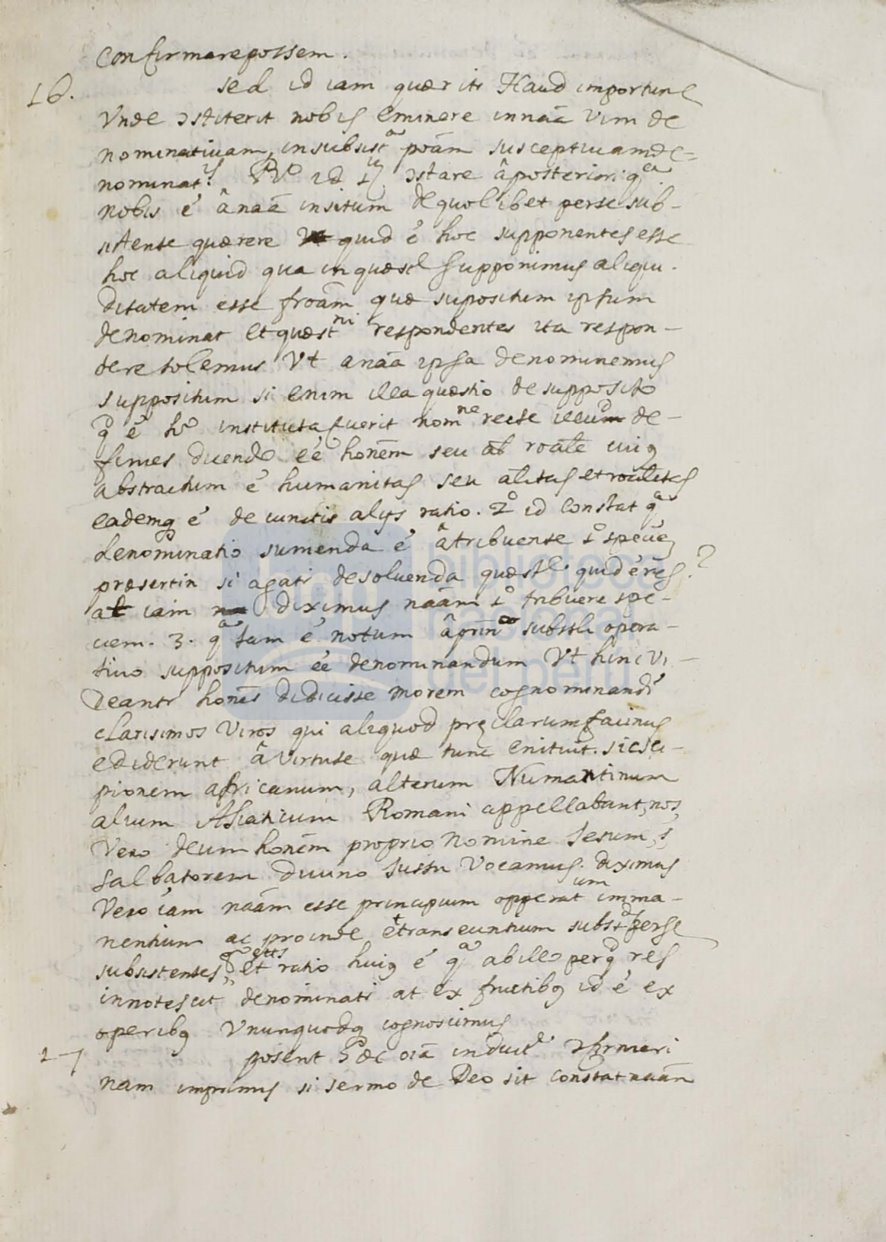 confirmare possem.
16. sed id iam quæritr Haud importune
Vnde ɔstiterit nobis eminere in naā vim de
nominatiuam, in subsistª poām susceptiuam de=
nominatis ɔstare â posteriori qª
nobis ē â naā insitum de quolibet per se sub-
sistente quærere quid ē hoc supponentes esse
hoc aliquid qua in quæst supponimus aliqui-
ditatem esse froām quæ supositum ipsum
denominat et quæstni respondentes ita respon-
dere solemus Vt a naā ipsa denominemus
suppositum si enim illa quæstio de supposito
q ē ho instituta fuerit nomne recte illum de-
finies dicendo ēe honēm seu al roāle cuiq
abstractum ē humanitas seu alitas et roālitas
eademq ē de cunctis alijs ratio. 2º id constat qª
denominatio sumenda ē â tribuente speciē
præsertin si agatr de soluenda quæst quid ē res?
at iam diximus naām tribuere spe-
ciem. 3. qª ē notum â prin substli opera-
tiuo suppositum ēe denominandum Vt hinc vi-
deantr honēs didicisse morem cognominandi
clarisimos Viros qui aliquod preclarum facinus
ediderunt â virtute quæ tunc enituit. sic sci-
pionem africanum, alterum Numantinum
alium Asiaticum Romani appellabant, nos,
Vero deum honēm proprio nomine Jesum, s,
salbatorem diuino jussu Vocamus. diximus
Vero iam naām esse principium opperatium imma-
nentium ac proinde et transeuntium per se
subsistentes et ratio huiq ē qª ab illo per q res
innotescit denominatr at ex fructibq id ē ex
operibq Vnunquodq cognoscimus
17 posent hæc oīa induct ɔfirmari
nam imprimis si sermo de Deo sit constat naām
biblioteca
nacional
del perú